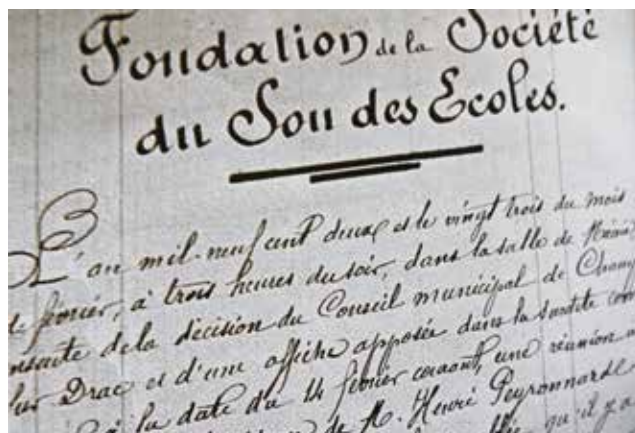 Fondation de la Société
du Sou des Ecoles.
L'an mil-neuf cent deux et le vingt trois du mois
de février, à trois heures du soir, dans la salle de
de la décision du Conseil municipal de
sur Drac et d'une affiche apposée dans la susdite
à la date du 14 février courant, une réunion
de M. Henri Peyronnard
qu'il y a